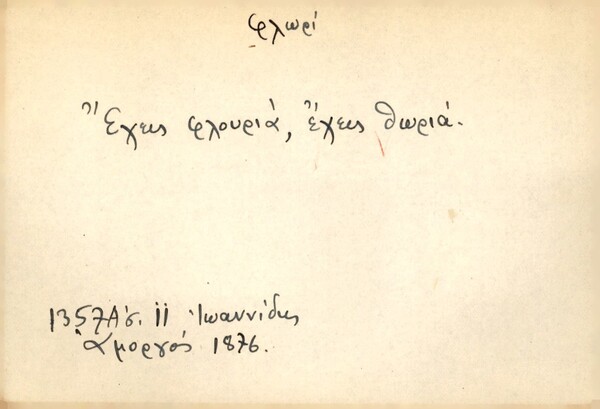 φλωρί
Ἔχεις φλουριά, ἔχεις θωριά.
1357 Ἀσ. ΙΙ Ἰωαννίδης
Ἀμοργός 1876.